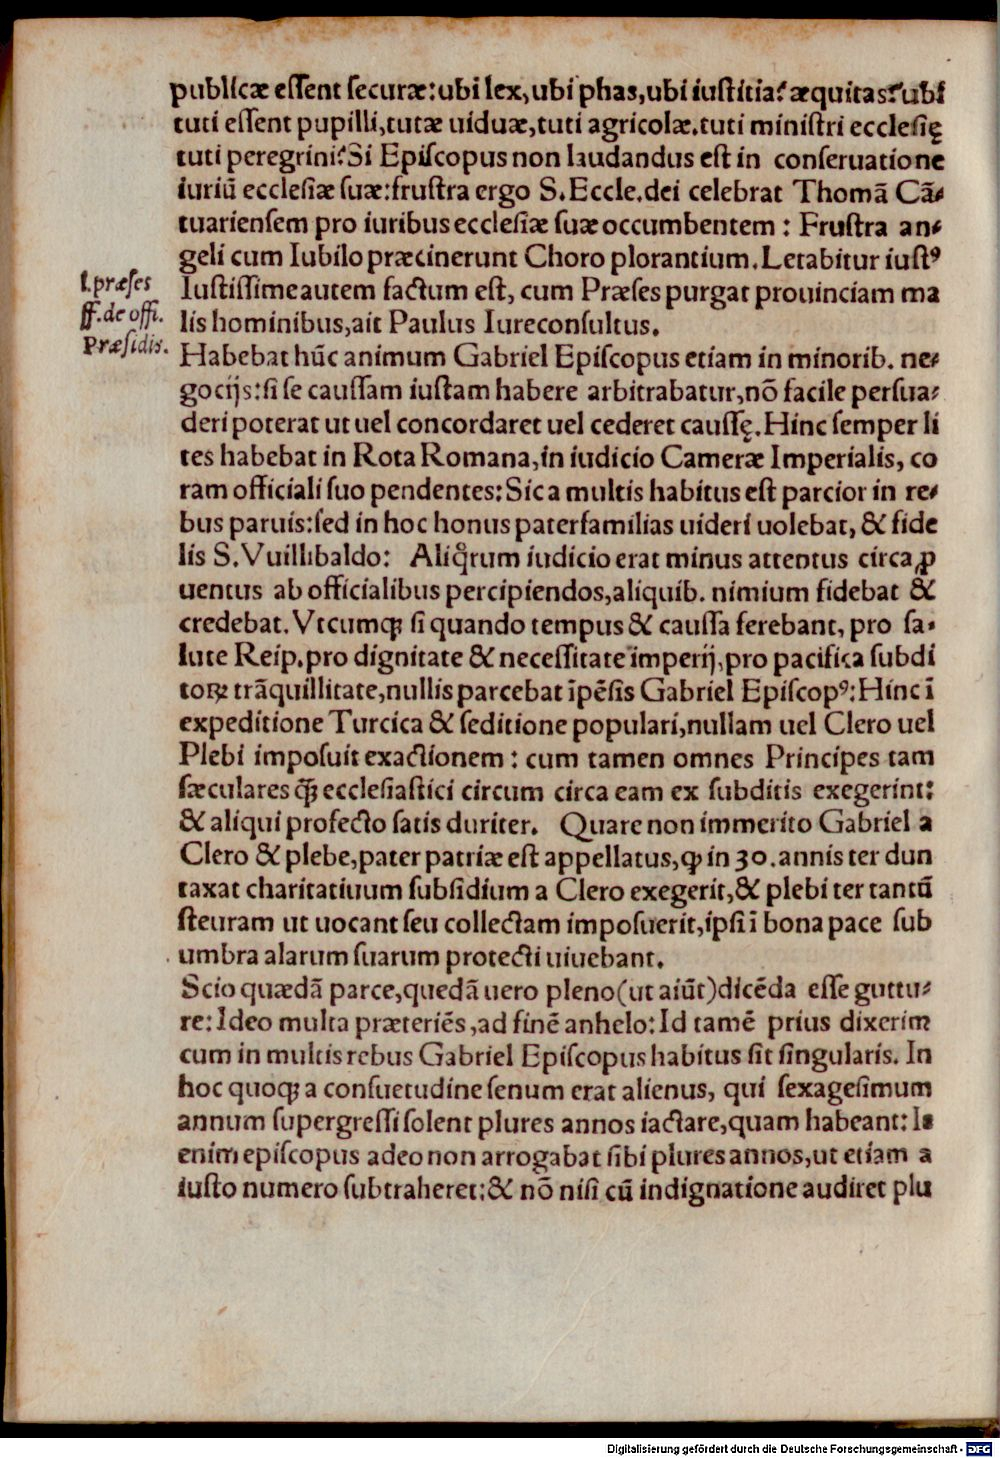 publicæ essent securæ: ubi lex, ubi phas, ubi iustitia? æquitas? ubi
tuti essent pupilli, tutæ uiduæ, tuti agricolæ. tuti ministri ecclesię
tuti peregrini? Si Episcopus non laudandus est in conseruatione
iuriū ecclesiæ suæ: frustra ergo S. Eccle. dei celebrat Thomā Cā-
tuariensem pro iuribus ecclesiæ suæ occumbentem: Frustra an-
geli cum Iubilo præcinerunt Choro plorantium. Letabitur iustꝰ
l. præses
ff. de offi.
Præsidis.
Iustissime autem factum est, cum Præses purgat prouinciam ma
lis hominibus, ait Paulus Iureconsultus.
Habebat hūc animum Gabriel Episcopus etiam in minorib. ne-
gocijs: si se caussam iustam habere arbitrabatur, nō facile persua-
deri poterat ut uel concordaret uel cederet caussę. Hinc semper li
tes habebat in Rota Romana, in iudicio Cameræ Imperialis, co
ram officiali suo pendentes: Sic a multis habitus est parcior in re-
bus paruis: sed in hoc honus paterfamilias uideri uolebat, & fide
lis S. Vuillibaldo: Aliq̄rum iudicio erat minus attentus circa ꝓ
uentus ab officialibus percipiendos, aliquib. nimium fidebat &
credebat. Vtcumqꝫ si quando tempus & caussa ferebant, pro sa-
lute Reip. pro dignitate & necessitate imperij, pro pacifica subdi
toꝝ trāquillitate, nullis parcebat īpēsis Gabriel Episcopꝰ: Hinc ī
expeditione Turcica & seditione populari, nullam uel Clero uel
Plebi imposuit exactionem: cum tamen omnes Principes tam
sæculares q̄ꝫ ecclesiastici circum circa eam ex subditis exegerint:
& aliqui profecto satis duriter. Quare non immerito Gabriel a
Clero & plebe, pater patriæ est appellatus, ꝙ in 30. annis ter dun
taxat charitatiuum subsidium a Clero exegerit, & plebi ter tantū
steuram ut uocant seu collectam imposuerit, ipsi ī bona pace sub
umbra alarum suarum protecti uiuebant.
Scio quædā parce, quedā uero pleno (ut aiūt) dicēda esse guttu-
re: Ideo multa præteriēs, ad finē anhelo: Id tamē prius dixerim
cum in multis rebus Gabriel Episcopus habitus sit singularis. In
hoc quoqꝫ a consuetudine senum erat alienus, qui sexagesimum
annum supergressi solent plures annos iactare, quam habeant: Is
enim episcopus adeo non arrogabat sibi plures annos, ut etiam a
iusto numero subtraheret: & nō nisi cū indignatione audiret plu
Digitalisierung gefördert durch die Deutsche Forschungsgemeinschaft - DFG